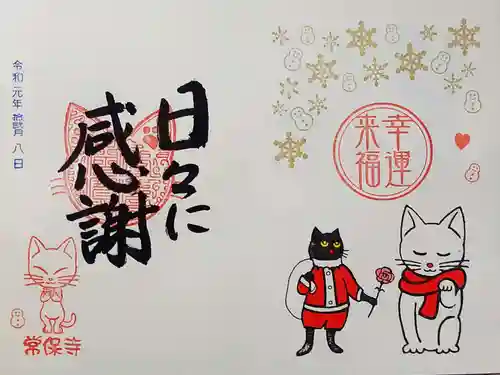 幸運
来福
日々に
感謝
令和元年 八日
常保寺